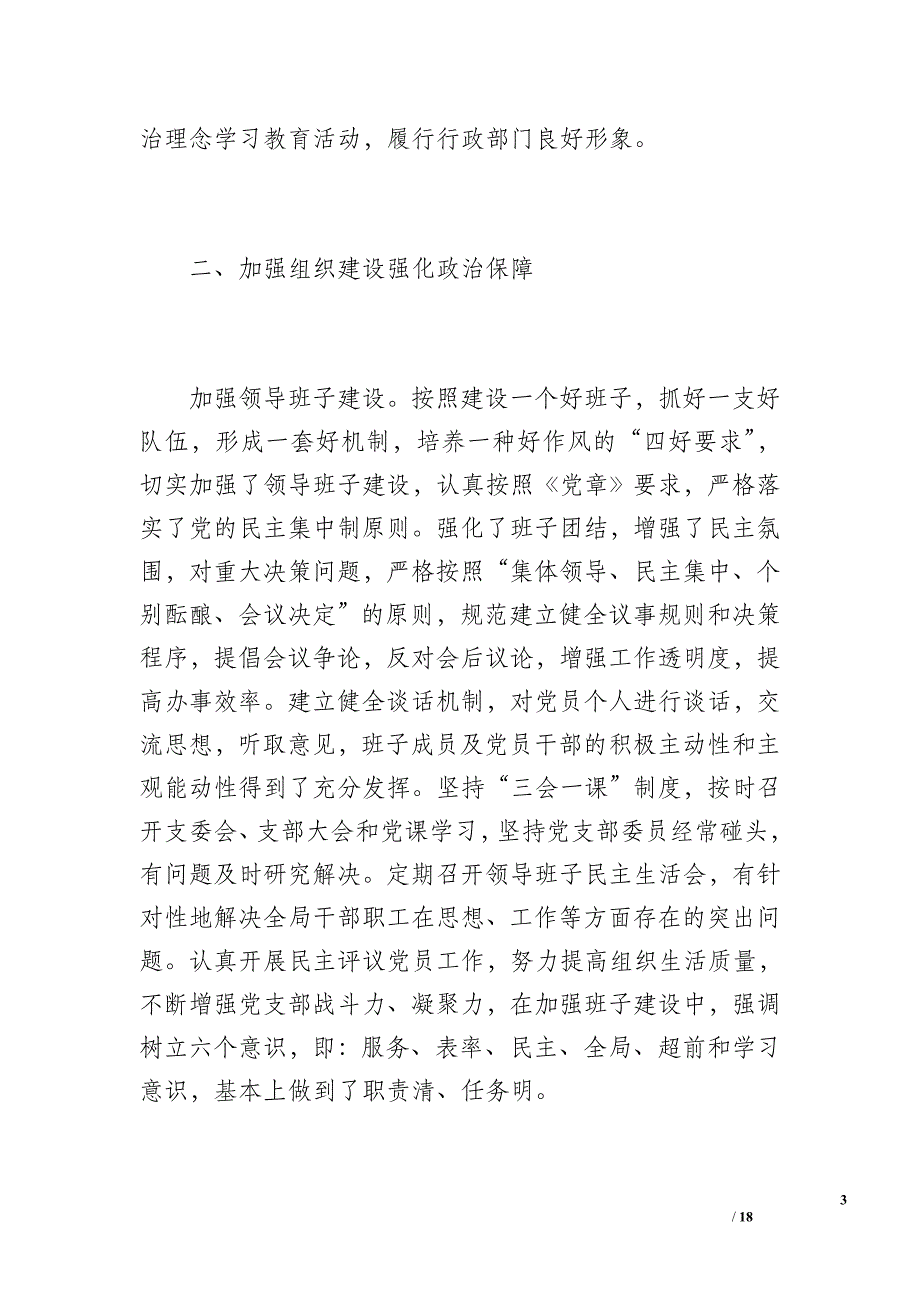 治理念学习教育活动，履行行政部门良好形象。
二、加强组织建设强化政治保障
加强领导班子建设。按照建设一个好班子，抓好一支好
队伍，形成一套好机制，培养一种好作风的“四好要求”，
切实加强了领导班子建设，认真按照《党章》要求，严格落
实了党的民主集中制原则。强化了班子团结，增强了民主氛
围，对重大决策问题，严格按照“集体领导、民主集中、个
别酝酿、会议决定”的原则，规范建立健全议事规则和决策
程序，提倡会议争论，反对会后议论，增强工作透明度，提
高办事效率。建立健全谈话机制，对党员个人进行谈话，交
流思想，听取意见，班子成员及党员干部的积极主动性和主
观能动性得到了充分发挥。坚持“三会一课”制度，按时召
开支委会、支部大会和党课学习，坚持党支部委员经常碰头，
有问题及时研究解决。定期召开领导班子民主生活会，有针
对性地解决全局干部职工在思想、工作等方面存在的突出问
题。认真开展民主评议党员工作，努力提高组织生活质量，
不断增强党支部战斗力、凝聚力，在加强班子建设中，强调
树立六个意识，即：服务、表率、民主、全局、超前和学习
意识，基本上做到了职责清、任务明。
3
/ 18